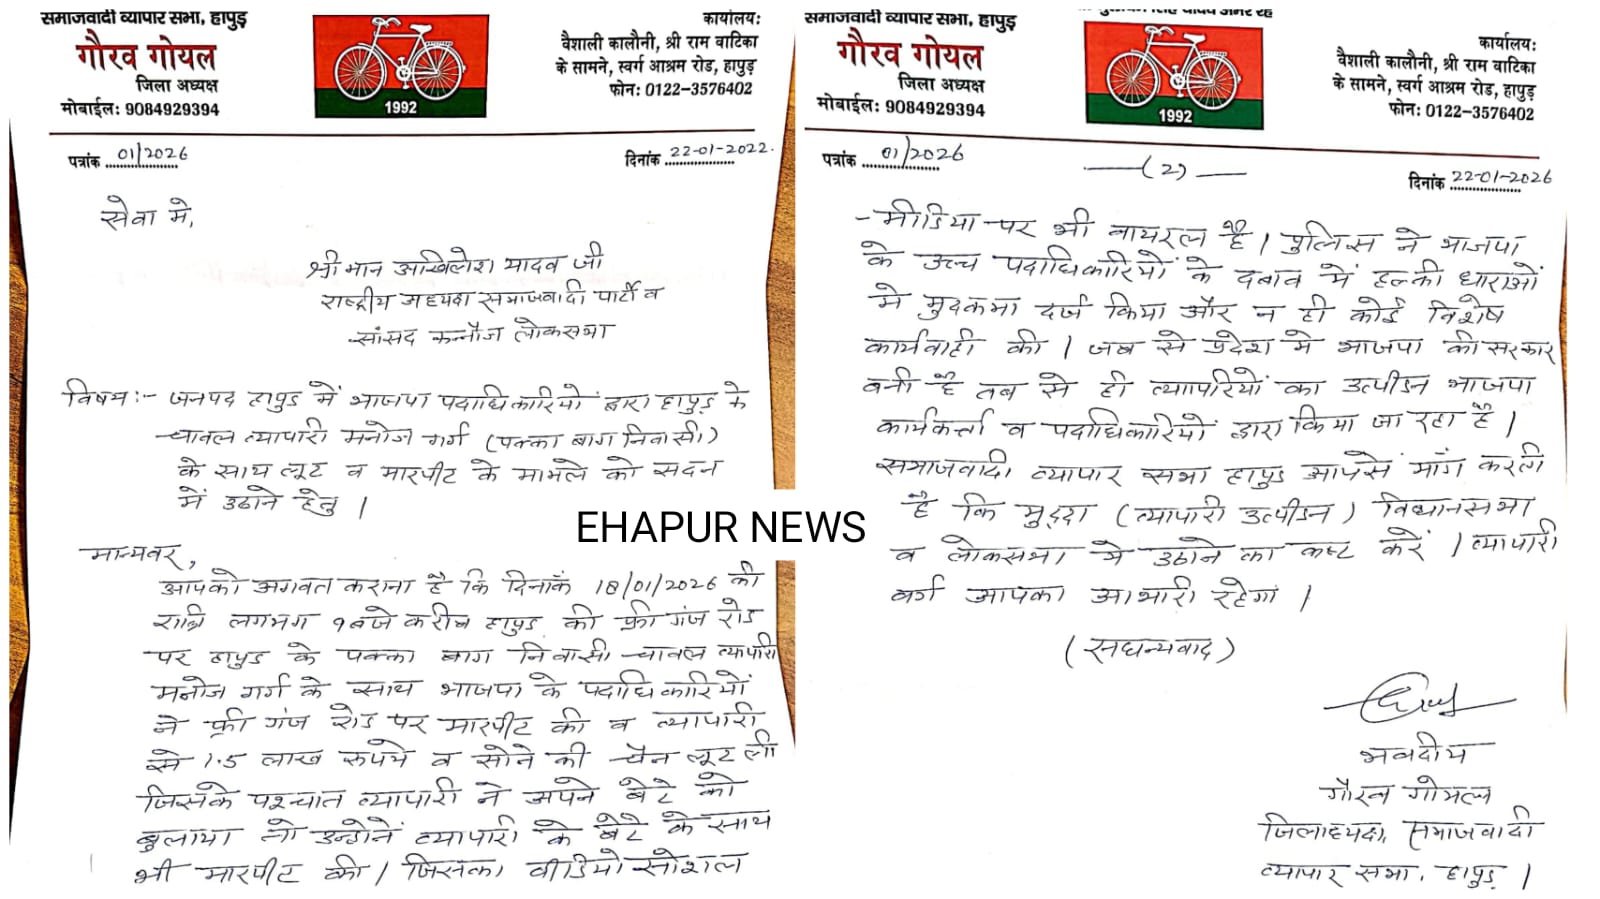 समाजवादी व्यापार सभा, हापुड़
गौरव गोयल
जिला अध्यक्ष
मोबाईल: 9084929394
1992
कार्यालय:
वैशाली कालौनी, श्री राम वाटिका
के सामने, स्वर्ग आश्रम रोड, हापुड़
फोन: 0122-3576402
पत्रांक 01/2026
दिनांक 22-01-2022.
सेवा मे,
श्रीमान अखिलेश यादव जी
राष्ट्रीय अध्यक्ष समाजवादी पार्टी व
सांसद कन्नौज लोकसभा
विषय:- जनपद हापुड़ में भाजपा पदाधिकारियों द्वारा हापुड़ के
चावल व्यापारी मनोज गर्ग (पक्का बाग निवासी)
के साथ लूट व मारपीट के मामले को सदन
में उठाने हेतु।
मान्यवर,
आपको अवगत कराना है कि दिनांक 18/01/2026 की
रात्रि लगभग 9 बजे करीब हापुड़ की फ्री गंज रोड
पर हापुड़ के पक्का बाग निवासी चावल व्यापारी
मनोज गर्ग के साथ भाजपा के पदाधिकारियों
ने फ्री गंज रोड पर मारपीट की व व्यापारी
से 1.5 लाख रुपये व सोने की चैन लूट ली
जिसके पश्चात व्यापारी ने अपने बेटे को
बुलाया तो उन्होनें व्यापारी के बेटे के साथ
भी मारपीट की। जिसका वीडियो सोशल
EHAPUR NEWS
समाजवादी व्यापार सभा, हापुड़
गौरव गोयल
जिला अध्यक्ष
मोबाईल: 9084929394
1992
कार्यालय:
वैशाली कालौनी, श्री राम वाटिका
के सामने, स्वर्ग आश्रम रोड, हापुड़
फोन: 0122-3576402
पत्रांक 01/2026
(2)
दिनांक 22-01-2026
-मीडिया पर भी वायरल है। पुलिस ने भाजपा
के उच्च पदाधिकारियों के दबाव में हल्की धाराओं
मे मुकदमा दर्ज किया और न ही कोई विशेष
कार्यवाही की। जब से प्रदेश मे भाजपा की सरकार
बनी है तब से ही व्यापारियों का उत्पीडन भाजपा
कार्यकर्त्ता व पदाधिकारियों द्वारा किया जा रहा है।
समाजवादी व्यापार सभा हापुड़ आपसे मांग करती
है कि मुद्दा (व्यापारी उत्पीडन) विधानसभा
व लोकसभा मे उठाने का कष्ट करें। व्यापारी
वर्ग आपका आभारी रहेगा।
(सधन्यवाद)
भवदीय
गौरव गोयल
जिलाध्यक्ष, समाजवादी
व्यापार सभा, हापुड़।